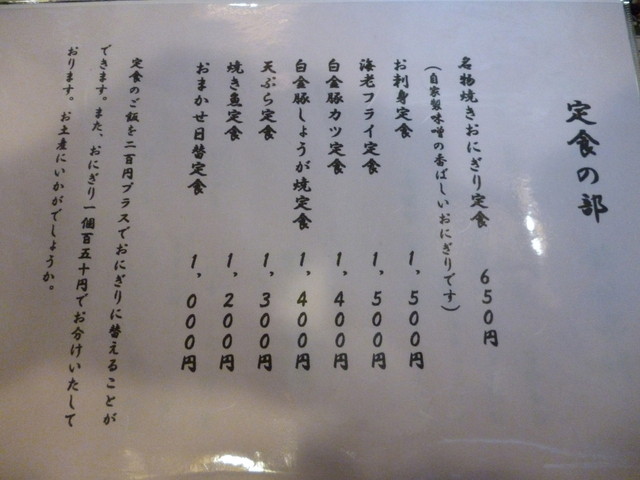 定食の部
名物焼きおにぎり定食 650円
(自家製味噌の香ばしいおにぎりです)
お刺身定食 1,500円
海老フライ定食 1,500円
白金豚カツ定食 1,400円
白金豚しょうが焼定食 1,400円
天ぷら定食 1,300円
焼き魚定食 1,200円
おまかせ日替定食 1,000円
定食のご飯を二百円プラスでおにぎりに替えることが
できます。また、おにぎり一個百五十円でお分けいたして
おります。お土産にいかがでしょうか。